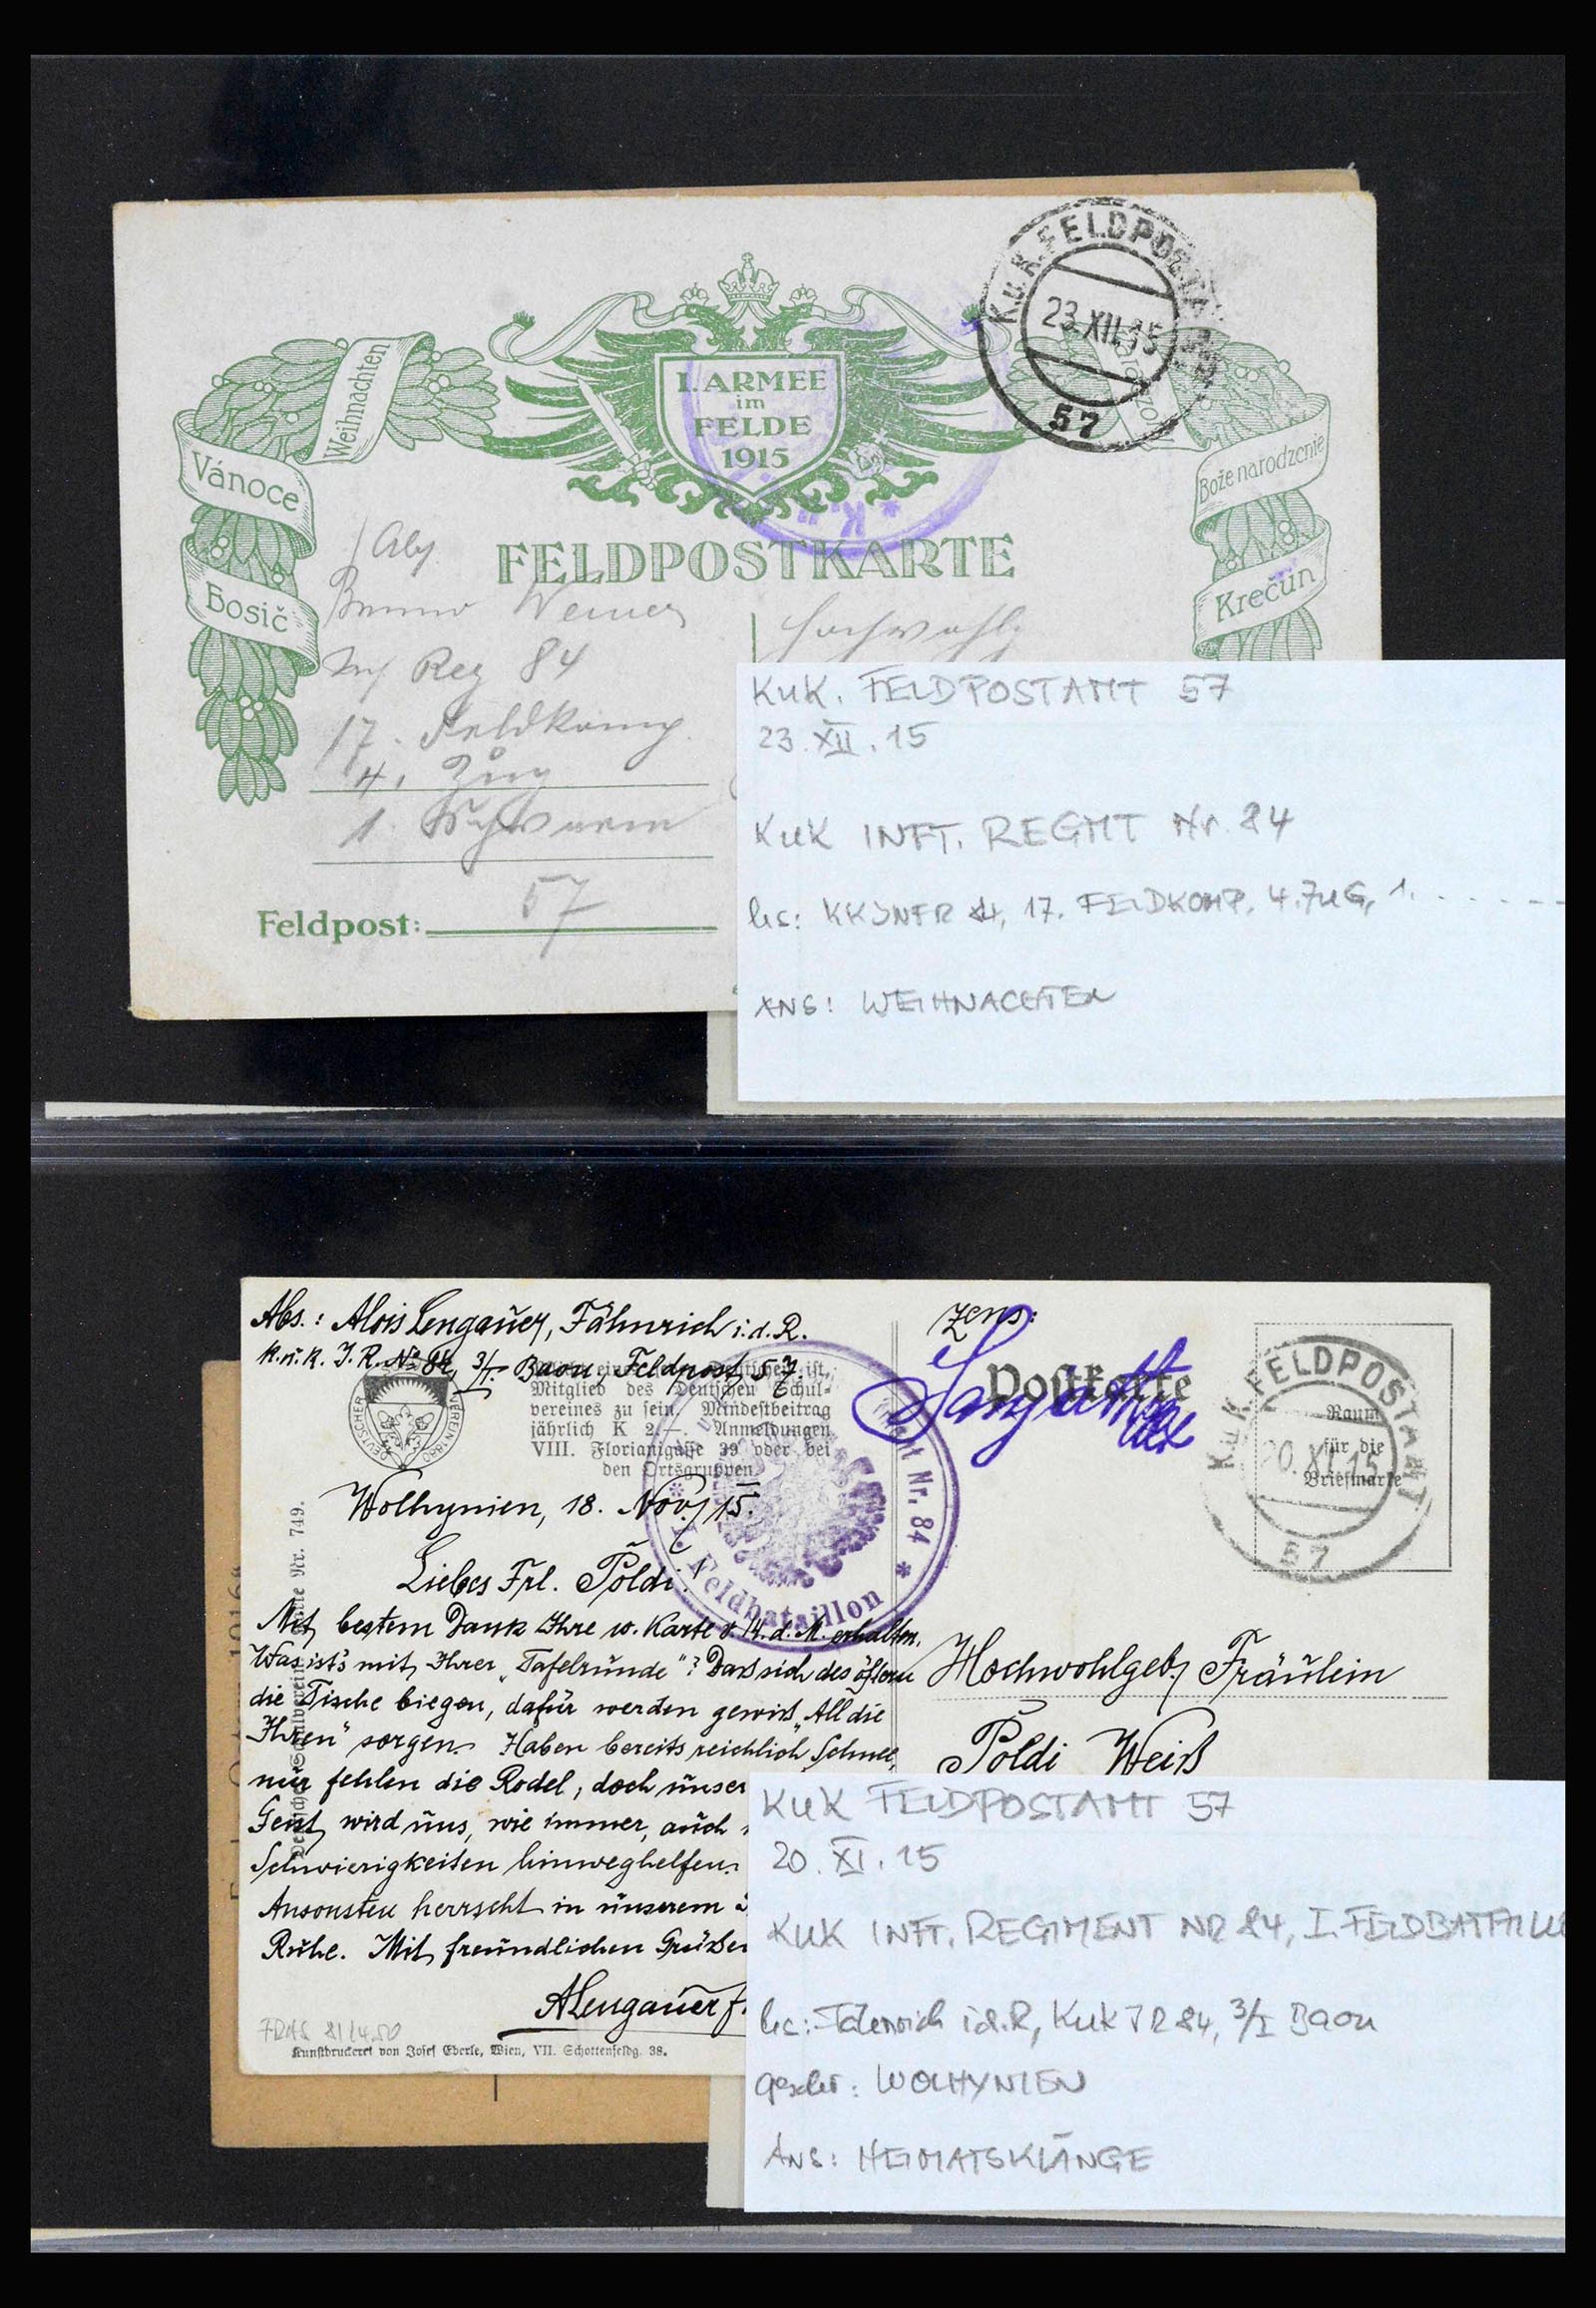 K.u.K. FELDPOSTA
23.XII.15
57
I. ARMEE
im
FELDE
1915
Weihnachten
Vánoce
Bosič
Bože narodzenie
Krečun
FELDPOSTKARTE
Bruno Werner
Inf Reg 84
17. Feldkomp.
4. Zug
1. Schwarm
Feldpost: 57
Hochwohlg
KuK. FELDPOSTAMT 57
23. XII. 15
KuK INFT. REGMT Nr. 84
17. FELDKOMP. 4. ZUG, 1. . . . . - -
ANS: WEIHNACHTEN
Abs.: Alois Lengauer, Fähnrich i. d. R.
K. u. K. I. R. No 84, 3/I. Baon, Feldpost 57.
Mitglied des Deutschen Schul-
vereines zu sein. Mindestbeitrag
jährlich K 2.—. Anmeldungen
VIII. Florianigasse 39 oder bei
den Ortsgruppen.
DEUTSCHER SCHULVEREIN 1880
Nr. 84 *
* I. Feldbataillon
Zens:
Postkarte
K.u.K. FELDPOSTAMT
20.XI.15
57
Raum
für die
Briefmarke
Wolhynien, 18. Nov. 15.
Liebes Frl. Poldi!
Mit bestem Dank Ihre w. Karte v. 14. d. M. erhalten.
Was ist's mit Ihrer „Tafelrunde"? Daß sich des öftern
die Tische biegen, dafür werden gewiß „All die
Ihren" sorgen. Haben bereits reichlich Schnee,
nur fehlen die Rodel; doch unser
Geist wird uns, wie immer, auch
Schwierigkeiten hinweghelfen.
Ansonsten herrscht in unserem
Ruhe. Mit freundlichen Grüßen
ALengauer f.
Hochwohlgeb. Fräulein
Poldi Weiß
Karte Nr. 749.
Kunstdruckerei von Josef Eberle, Wien, VII. Schottenfeldg. 38.
KUK FELDPOSTAMT 57
20. XI. 15
KUK INFT. REGIMENT NR 84, I. FELDBATAILLO
Fähnrich i.d.R, KuK IR 84, 3/I Baon
geschr: WOLHYNIEN
ANS: HEIMATSKLÄNGE